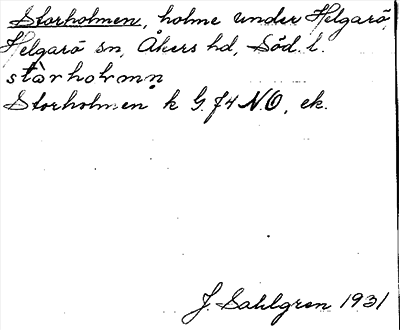 Storholmen, holme under Helgarö,
Helgarö sn, Åkers hd, Söd. l.
Storholmen k G. f4 N.O, ek.
J. Sahlgren 1931